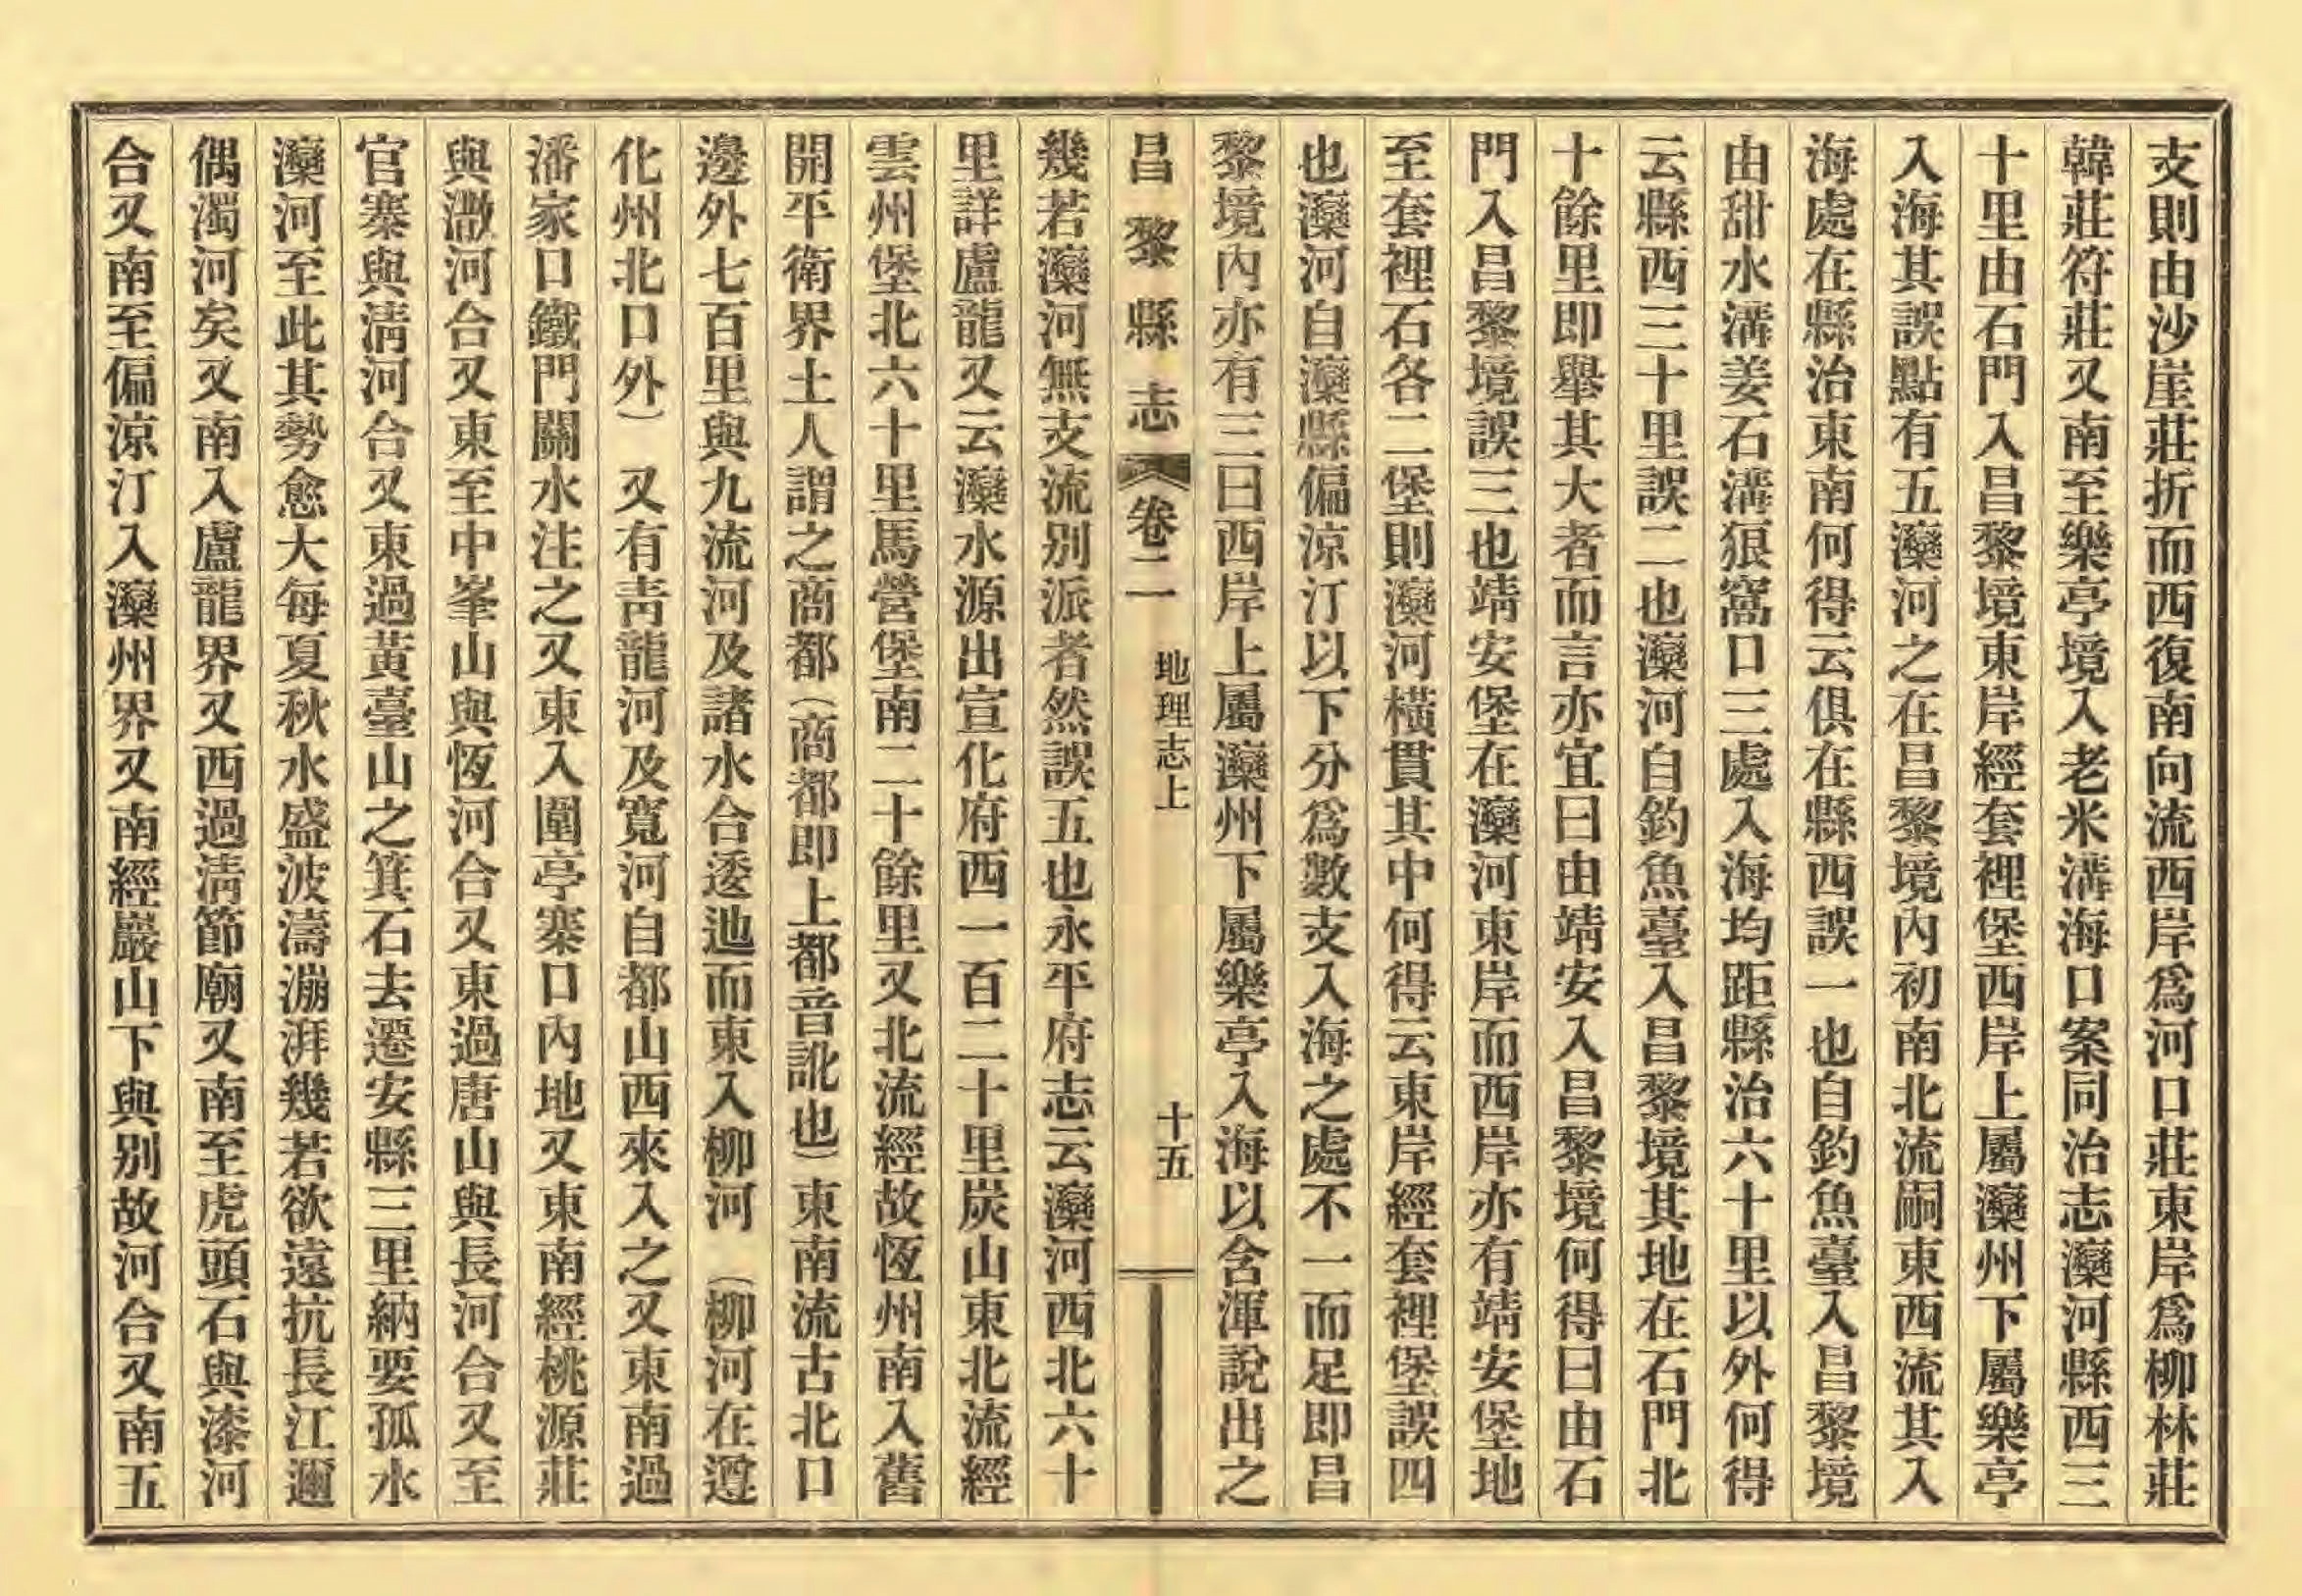 支則由沙崖莊折而西復南向流西岸爲河口莊東岸爲柳林莊
韓莊符莊又南至樂亭境入老米溝海口案同治志灤河縣西三
十里由石門入昌黎境東岸經套裡堡西岸上屬灤州下屬樂亭
入海其誤點有五灤河之在昌黎境內初南北流嗣東西流其入
海處在縣治東南何得云俱在縣西誤一也自釣魚臺入昌黎境
由甜水溝姜石溝狠窩口三處入海均距縣治六十里以外何得
云縣西三十里誤二也灤河自釣魚臺入昌黎境其地在石門北
十餘里即舉其大者而言亦宜曰由靖安入昌黎境何得曰由石
門入昌黎境誤三也靖安堡在灤河東岸而西岸亦有靖安堡地
至套裡石各二堡則灤河橫貫其中何得云東岸經套裡堡誤四
也灤河自灤縣偏涼汀以下分爲數支入海之處不一而足即昌
黎境內亦有三曰西岸上屬灤州下屬樂亭入海以含渾說出之
昌黎縣志 卷二 地理志上 十五
幾若灤河無支流別派者然誤五也永平府志云灤河西北六十
里詳盧龍又云灤水源出宣化府西一百二十里炭山東北流經
雲州堡北六十里馬營堡南二十餘里又北流經故恆州南入舊
開平衛界土人謂之商都（商都即上都音訛也）東南流古北口
邊外七百里與九流河及諸水合逶迆而東入柳河（柳河在遵
化州北口外）又有青龍河及寬河自都山西來入之又東南過
潘家口鐵門關水注之又東入團亭寨口內地又東南經桃源莊
與潵河合又東至中峯山與恆河合又東過唐山與長河合又至
官寨與淸河合又東過黃臺山之箕石去遷安縣三里納要孤水
灤河至此其勢愈大每夏秋水盛波濤漰湃幾若欲遠抗長江邇
偶濁河矣又南入盧龍界又西過淸節廟又南至虎頭石與漆河
合又南至偏涼汀入灤州界又南經巖山下與别故河合又南五